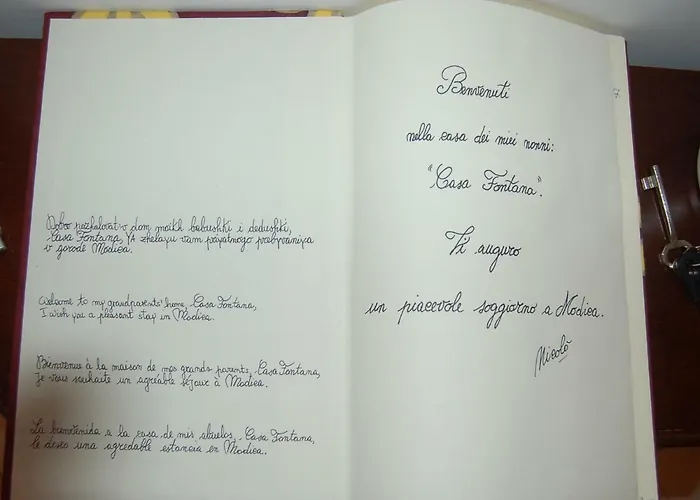 Dobro pozhalovat v dom moikh babushki i dedushki,
Casa Fontana, YA zhelayu vam priyatnogo prebyvaniya
v gorode Modica.
Welcome to my grandparents' home, Casa Fontana,
I wish you a pleasant stay in Modica.
Bienvenue à la maison de mes grands parents, Casa Fontana,
Je vous souhaite un agréable séjour à Modica.
La bienvenida a la casa de mis abuelos, Casa Fontana,
le deseo una agredable estancia en Modica.
Benvenuti
nella casa dei miei nonni:
"Casa Fontana".
Vi auguro
un piacevole soggiorno a Modica.
Nicolò